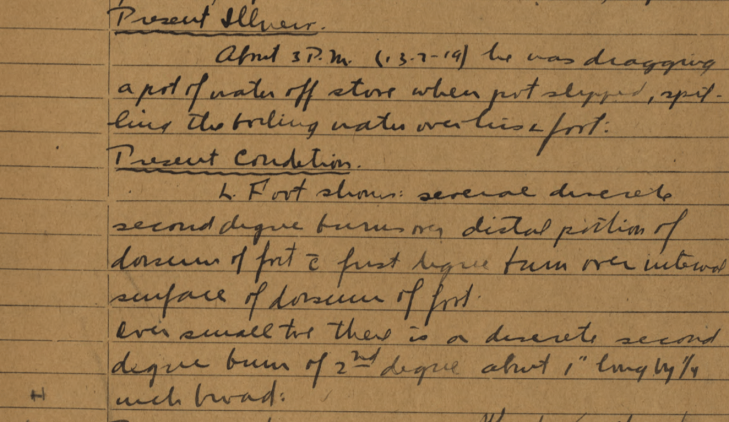 Present Illness.
About 3 P.M. (13-7-19) he was dragging
a pot of water off stove when pot slipped, spil-
ling the boiling water over his L foot:
Present Condition.
L. Foot shows: several discrete
second degree burns over distal portion of
dorsum of foot c̄ first degree burn over internal
surface of dorsum of foot.
Over small toe there is a discrete second
degree burn of 2nd degree about 1" long by 1/4
inch broad: